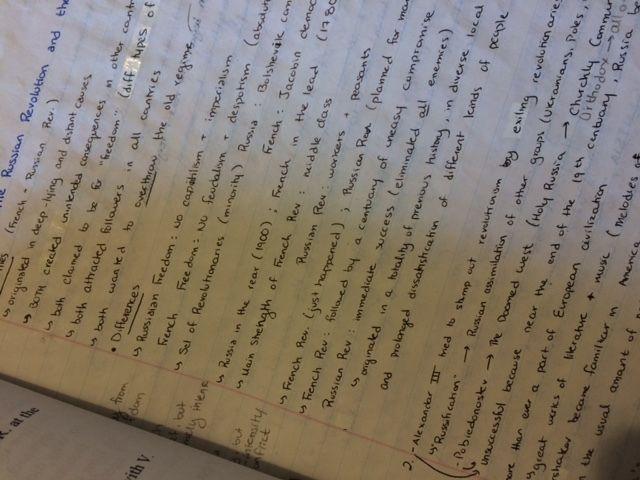 The Russian Revolution and the
(French + Russian Rev.)
↳ originated in deep-lying and distant causes
↳ BOTH created unintended consequences in other
↳ both claimed to be for "freedom" (diff types of
↳ both attracted followers in all countries
↳ both wanted to overthrow the old regime
• Differences
↳ Russian Freedom: no capitalism + imperialism
French Freedom: NO feudalism + despotism
↳ Sd of Revolutionaries (minority) Russia: Bolshevik
French: Jacobin
↳ Russia in the rear (1900); French in the lead
↳ Main strength of French Rev: middle class
Russian Rev: workers + peasants
↳ French Rev. (just happened); Russian Rev (planned for
↳ French Rev: followed by a century of uneasy compromise
Russian Rev: immediate success (eliminated all enemies)
↳ originated in a totality of previous history, in diverse local
and prolonged dissatisfication of different kinds of people
2. - Alexander III tried to stamp out revolutionism by exiling revolutionaries
↳ "Russification" → Russian assimilation of other groups (Ukrainians, Poles,
- Pobiedonostev → The Doomed West (Holy Russia → Churchly
Orthodox →
↳ unsuccessful because near the end of the 19th century, Russia
more than ever a part of European civilization
↳ great works of literature + music (melodies
became familiar in America
the usual amount of
from
but
but
intensity
at the
with V.